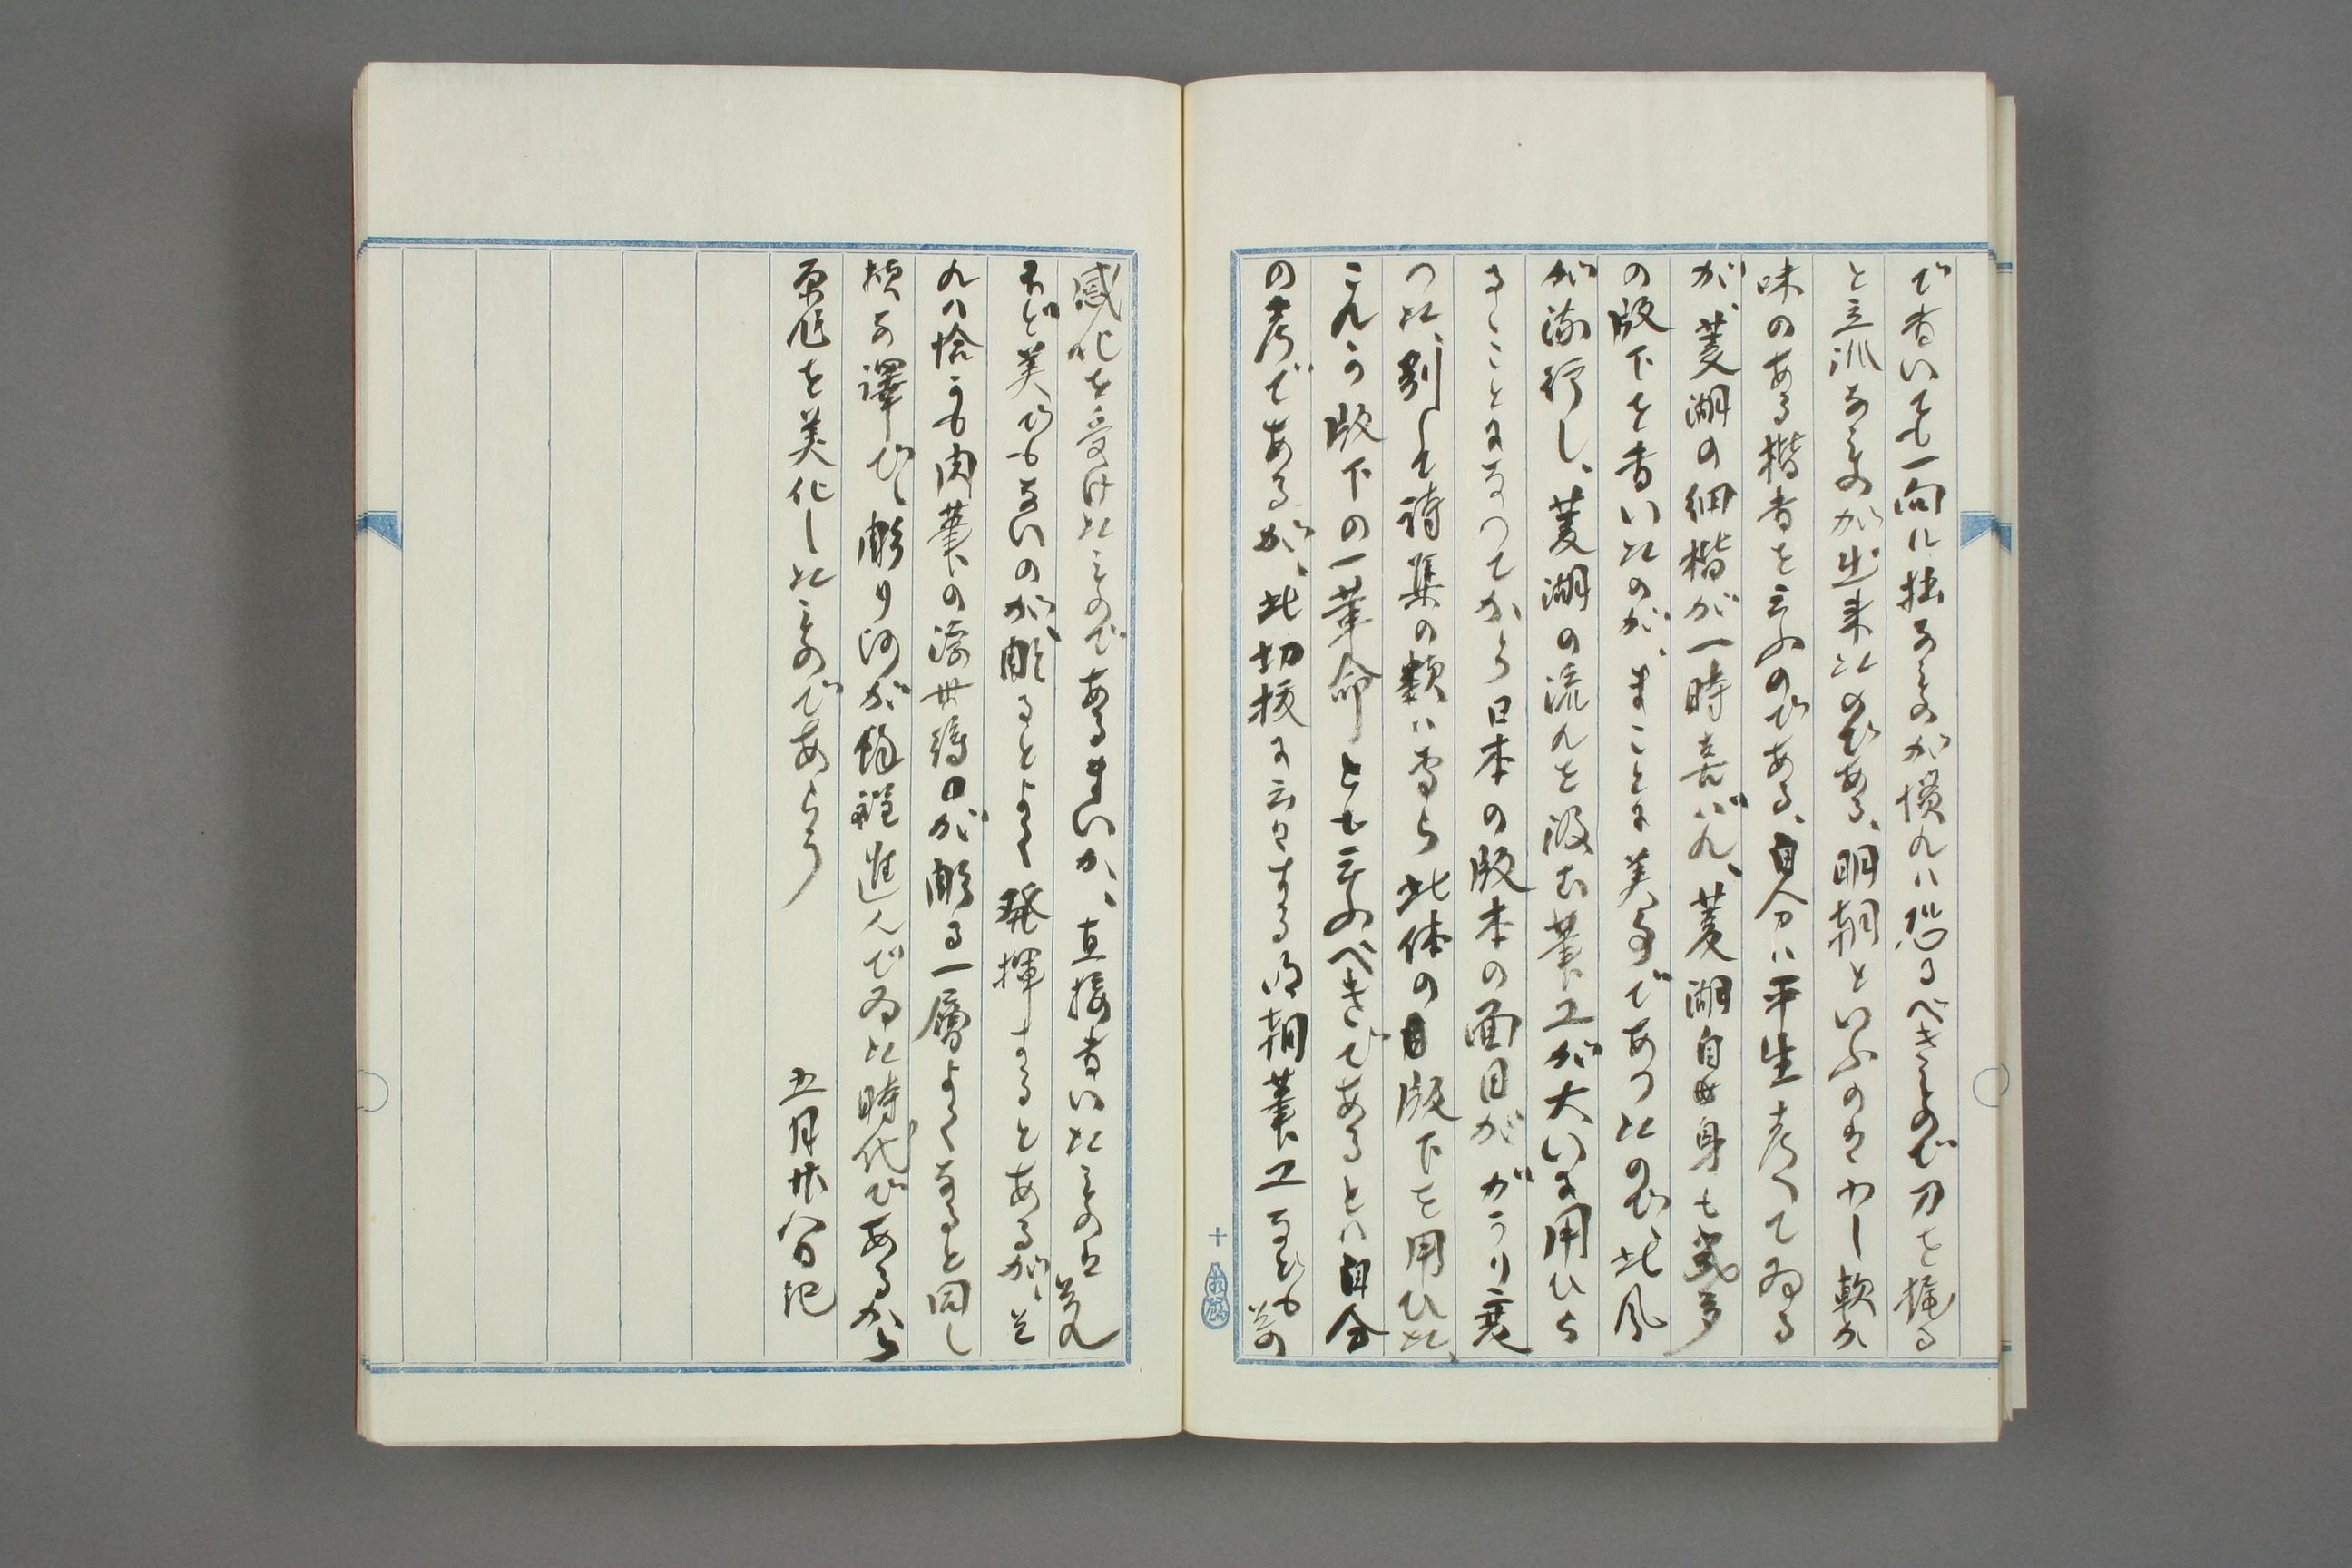 で書いても一向に拙なものが慣れハ恐るべきもので刀を揮る
と立派なものが出来たのである、明朝といふのは少し軟か
味のある楷書を云ふのである、自分ハ平生考へてゐる
が、菱湖の細楷が一時喜ばれ、菱湖自身も幾多
の版下を書いたのが、まことに美事であつたので、此風
が流行し、菱湖の流れを汲む筆工が大いに用ひら
るゝことになつてから日本の版本の面目ががらり変
つた、別して詩集の類ハ専ら此体の版下を用ひた、
これハ版下の一革命とも云ふべきであるとハ自分
の考であるが、此切抜に云々する明朝筆工なども其の
感化を受けたものであるまいか、直接書いたものは美
事でもないのが、彫るとよく発揮するとあるが、そ
れハ恰うも肉筆の浮世絵のが彫る一層よくなると同し
様な譯で、彫り師が餘程進んでゐた時代であるから
原作を美化したものであらう
五月廿八日記
十